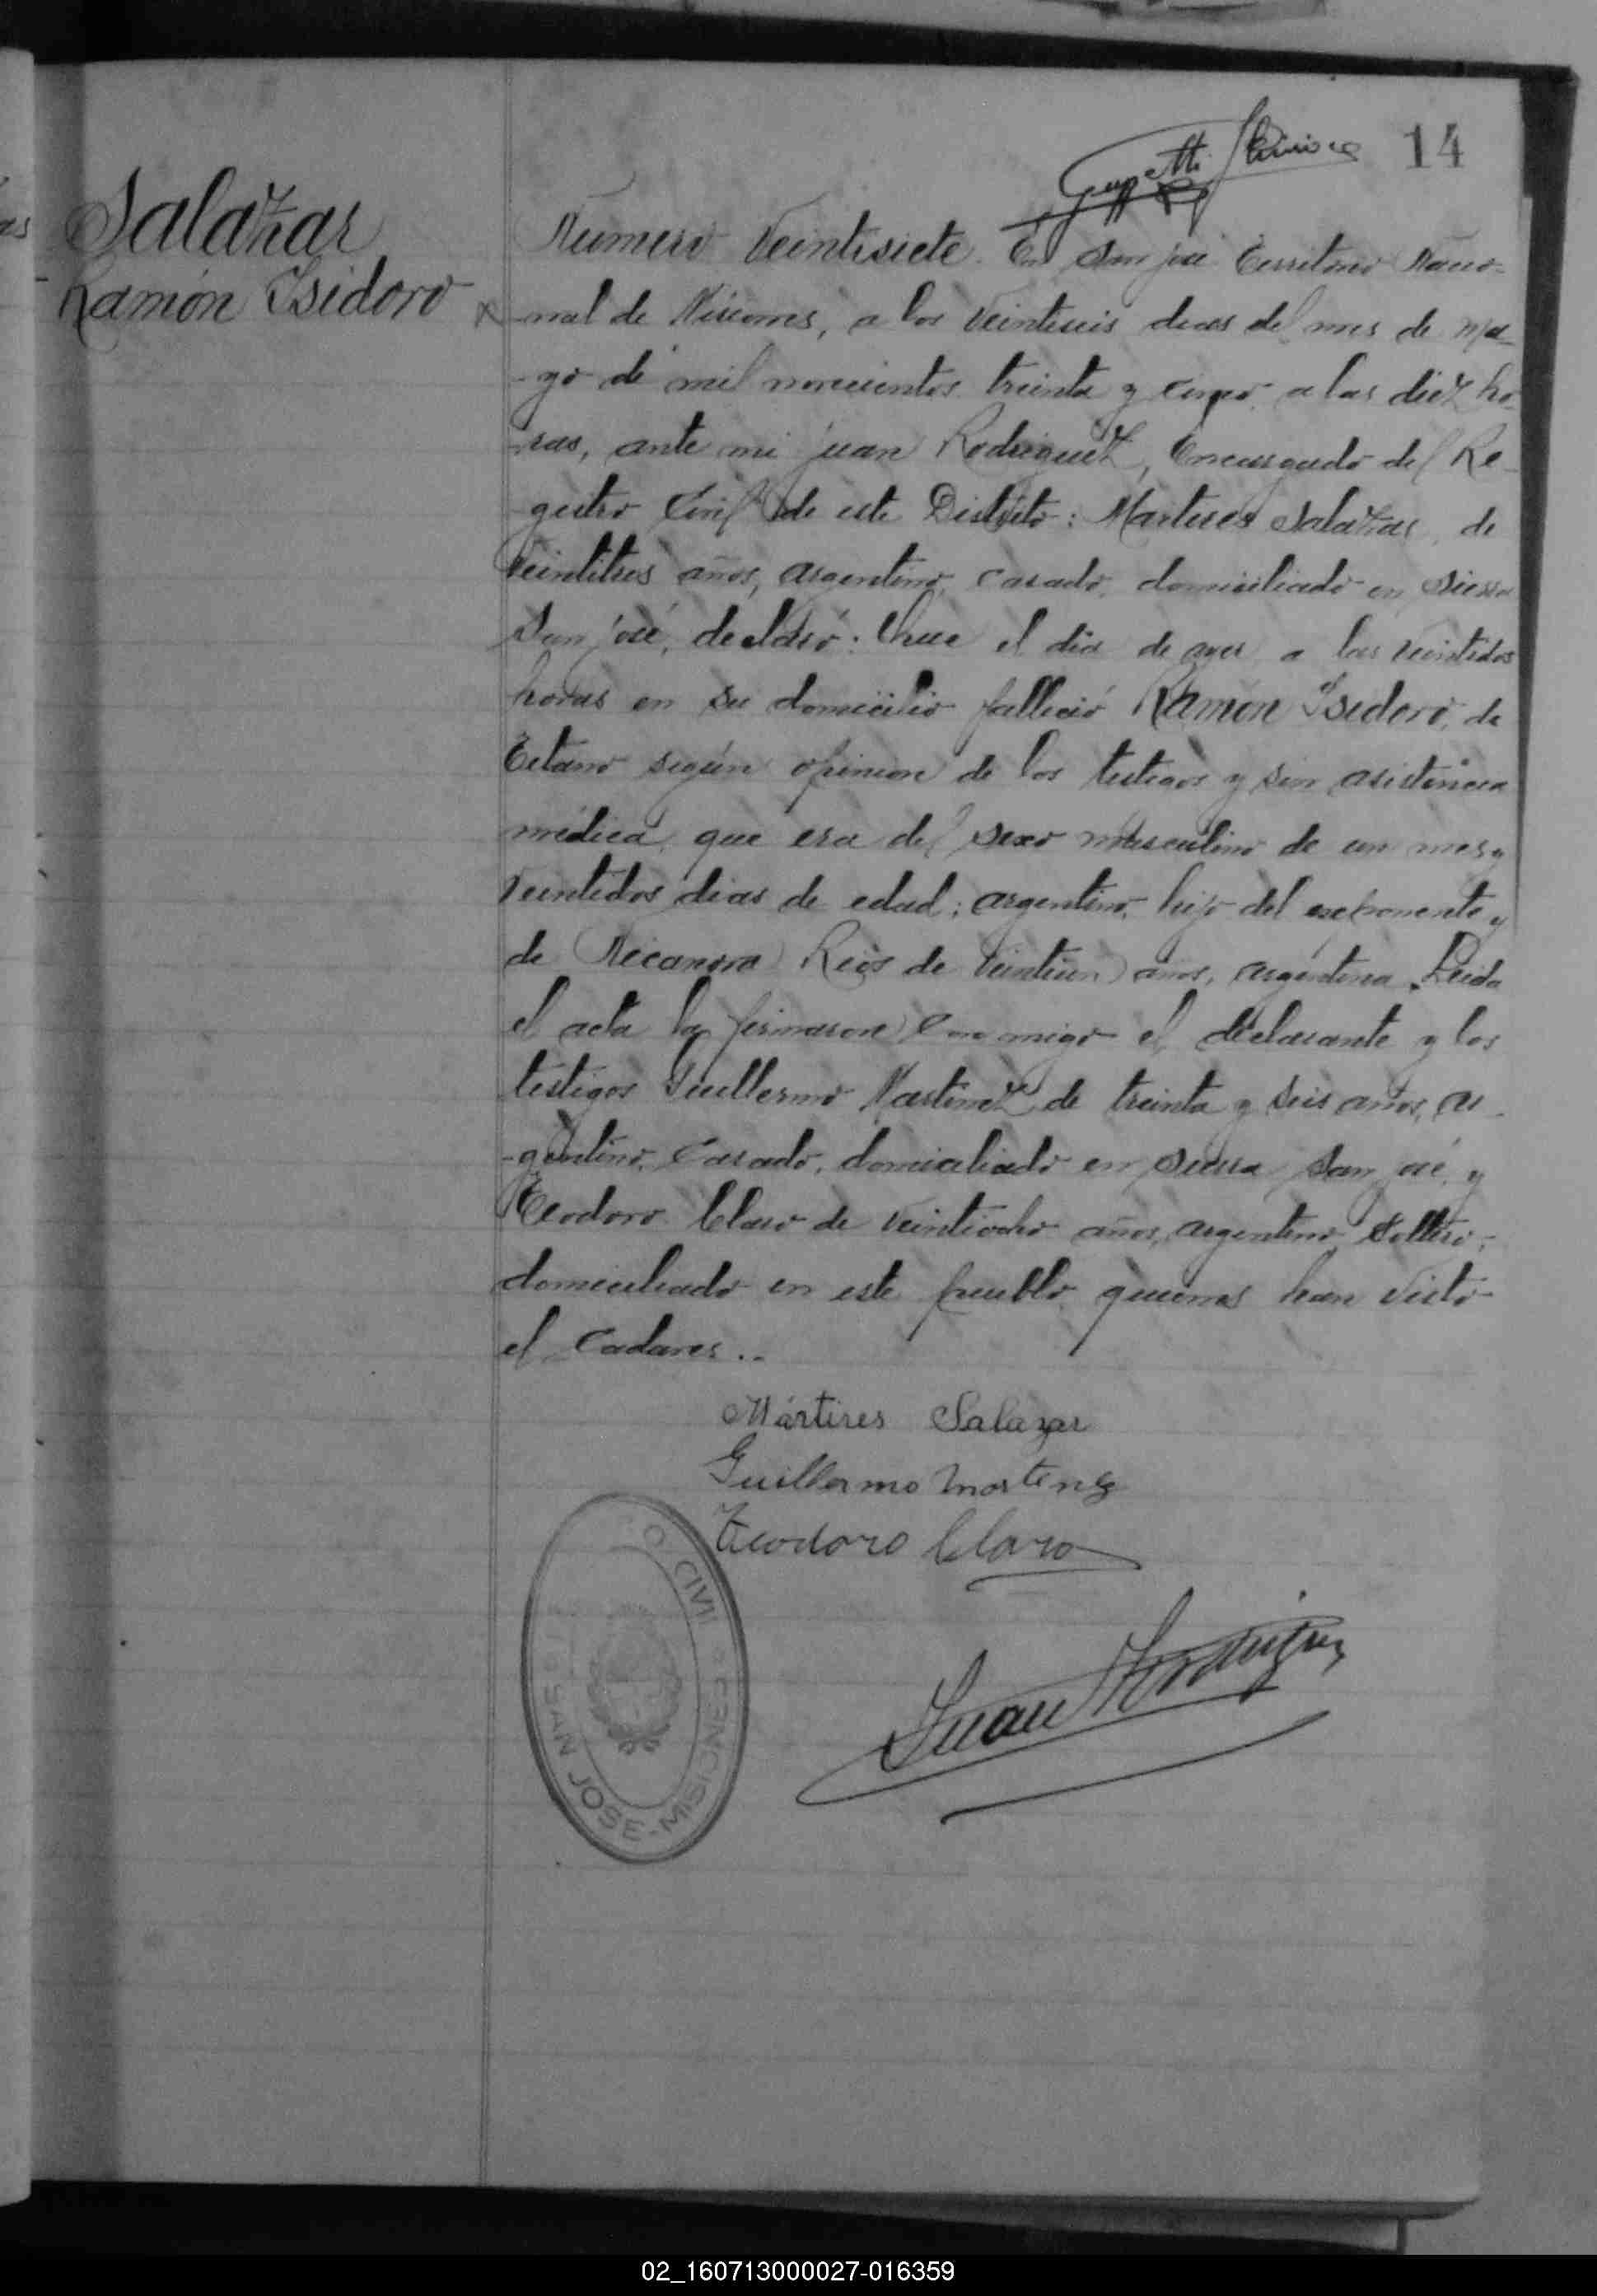 14
Salazar
Ramón Isidoro
Numero Veintisiete. En San José Territorio Nacio-
-nal de Misiones, a los Veintiseis dias del mes de Ma-
-yo de mil novecientos treinta y cinco, a las diez ho-
-ras, ante mi Juan Rodriguez, Encargado del Re-
-gistro Civil de este Distrito: Martires Salazar, de
Veintitres años, argentino, casado, domiciliado en Sierra
San José, declaró: Que el dia de ayer a las veintidos
horas en su domicilio falleció Ramón Isidoro, de
Tetano según opinion de los testigos y sin asistencia
médica, que era del sexo masculino de un mes y
Veintidos dias de edad; argentino, hijo del exponente y
de Nicanora Rios de Veintiun años, argentina. Leida
el acta la firmaron conmigo el declarante y los
testigos Guillermo Martinez de treinta y seis años, ar-
-gentino, Casado, domiciliado en Sierra San José, y
Teodoro Claro de Veintiocho años, argentino, Soltero,
domiciliado en este pueblo quienes han visto
el Cadaver..
Mártires Salazar
Guillermo Martenz
Teodoro Claro
Juan Rodriguez
O CIVIL
SAN JOSE-MISIONES
02_160713000027-016359